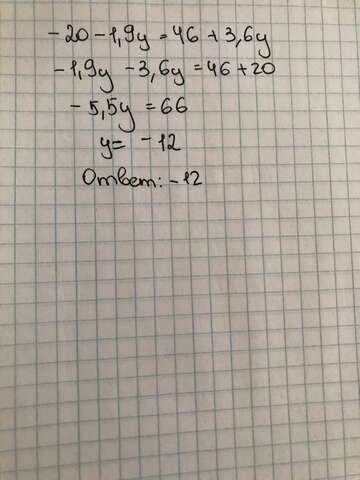 -20-1,9y=46+3,6y
-1,9y-3,6y=46+20
-5,5y=66
y= -12
Ответ: -12